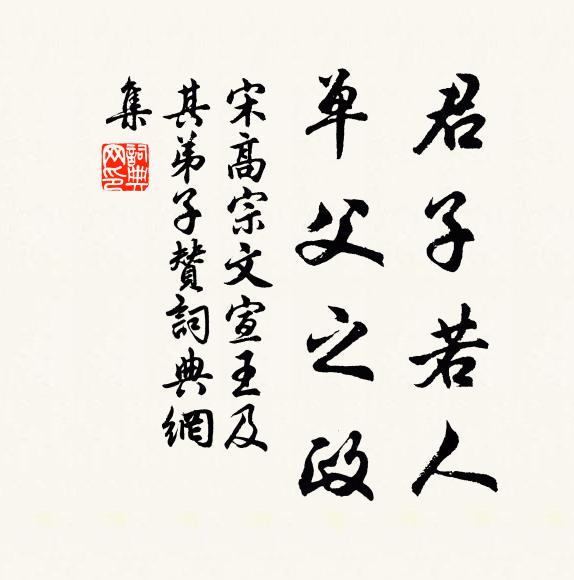 君子若人
单父之政
宋高宗文宣王及
其弟子赞詞典網
集
詞典网印